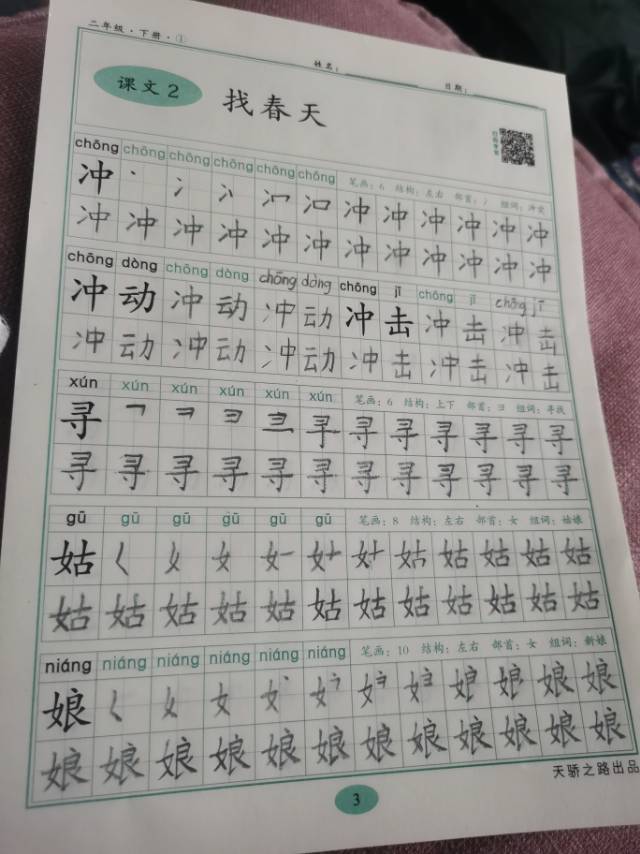 二年级·下册·①
姓名: 日期:
课文 2 找春天
chōng chōng chōng chōng chōng chōng 笔画：6 结构：左右 部首：冫 组词：冲突
冲 丶 冫 冲 冲 冲 冲 冲 冲
冲 冲 冲 冲 冲 冲 冲 冲 冲 冲 冲 冲
chōng dòng chōng dòng chōng dòng chōng jī chōng jī chōng jī
冲 动 冲 动 冲 动 冲 击 冲 击 冲 击
冲 动 冲 动 冲 动 冲 击 冲 击 冲 击
xún xún xún xún xún xún 笔画：6 结构：上下 部首：彐 组词：寻找
寻 ㇕ 彐 寻 寻 寻 寻 寻 寻
寻 寻 寻 寻 寻 寻 寻 寻 寻 寻 寻 寻
gū gū gū gū gū gū 笔画：8 结构：左右 部首：女 组词：姑娘
姑 ㄑ 女 姑 姑 姑 姑 姑
姑 姑 姑 姑 姑 姑 姑 姑 姑 姑 姑 姑
niáng niáng niáng niáng niáng niáng 笔画：10 结构：左右 部首：女 组词：新娘
娘 ㄑ 女 娘 娘 娘
娘 娘 娘 娘 娘 娘 娘 娘 娘 娘 娘 娘
天骄之路出品
3